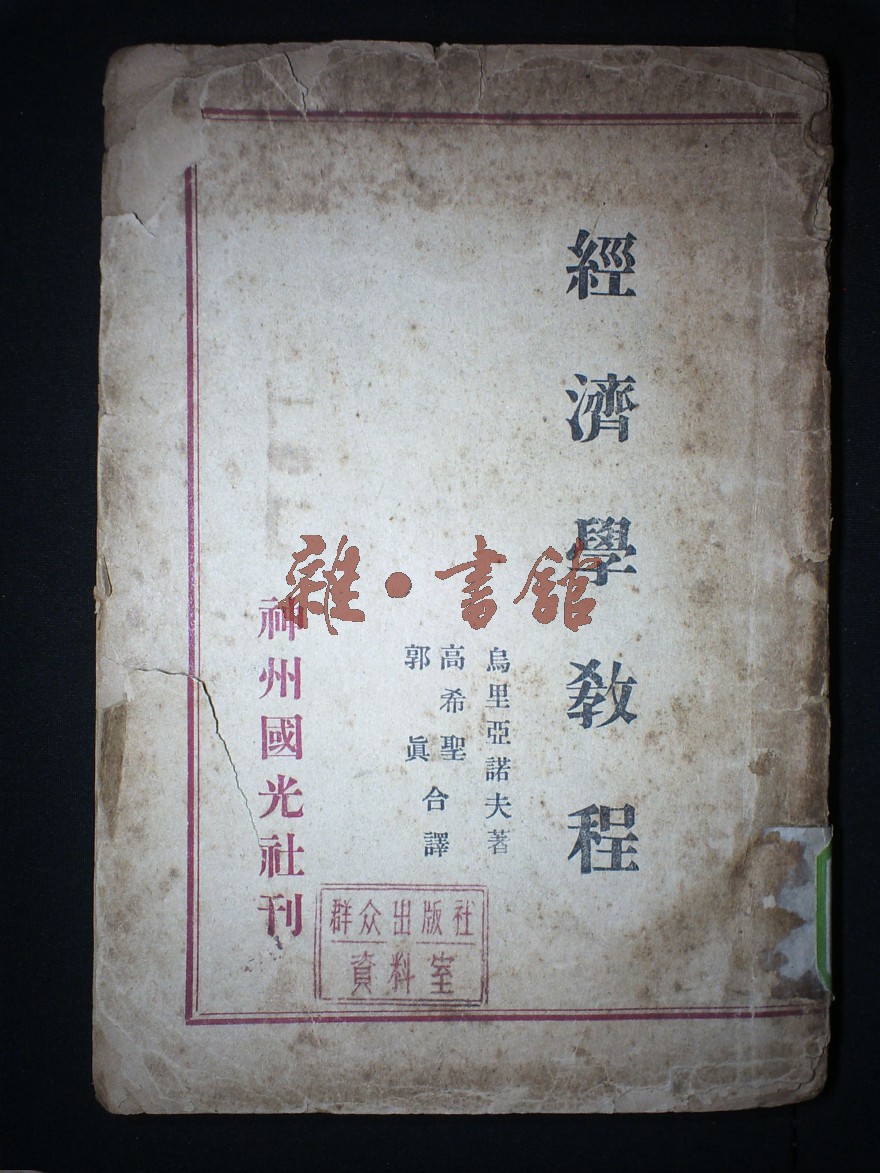 經濟學教程
烏里亞諾夫著
高希聖
郭眞
合譯
神州國光社刊
雜·書館
群众出版社
資料室